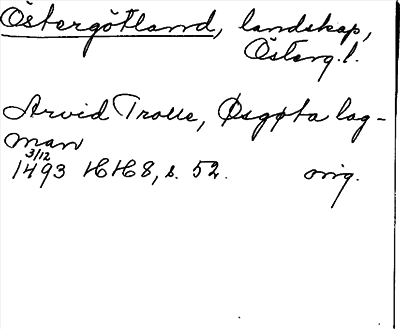 Östergötland, landskap,
Österg.l.
Arvid Trolle, Øsgøta lag-
man
3/12
1493 HH8, s. 52. orig.